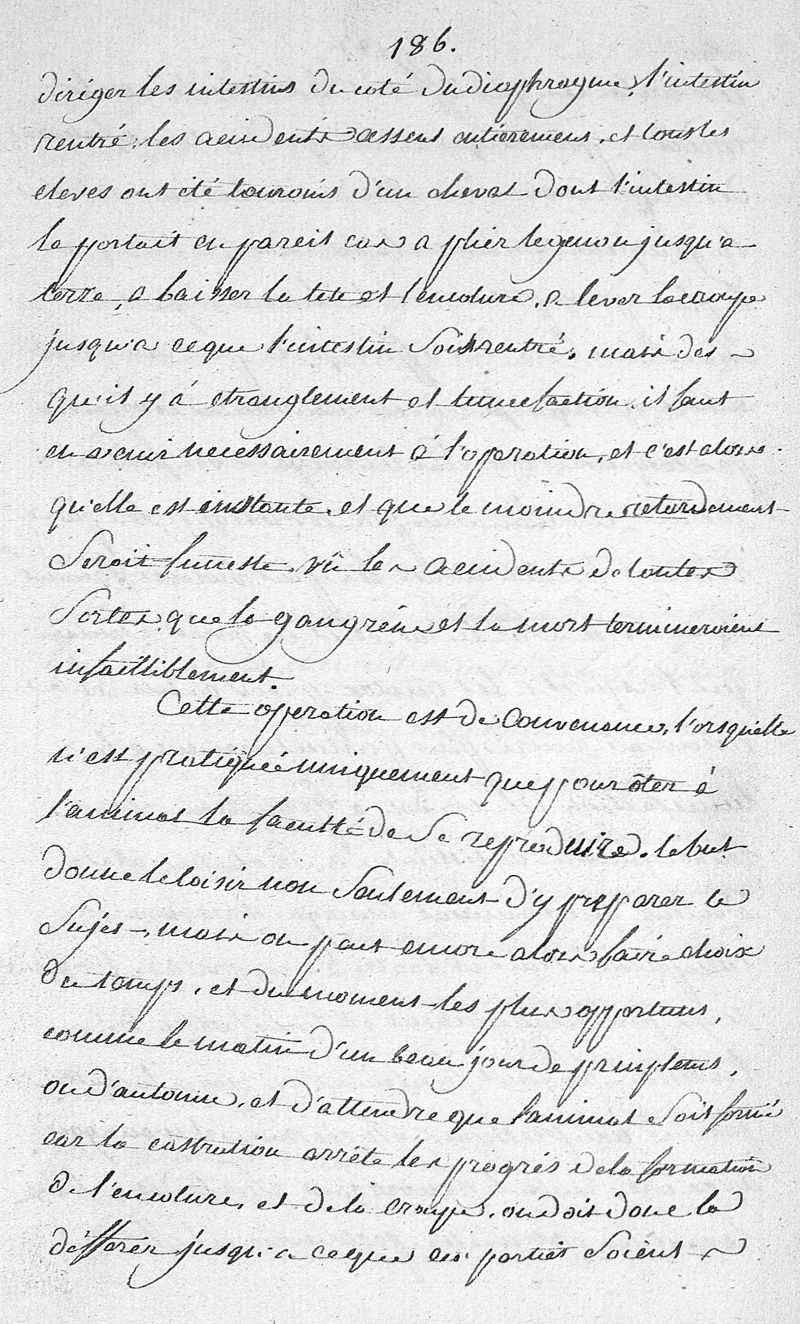 186.
diriger les intestins du coté du diaphragme, l'intestin
rentré; les accidents cessent entièrement, et tous les
eleves ont été temoins d'un cheval dont l'intestin
le portait en pareil cas a plier le genou jusqu'a
terre, a baisser la tete et l'encolure, a lever la croupe
jusqu'a ce que l'intestin soit rentré, mais des
qu'il y á etranglement et tumefaction, il faut
en venir necessairement á l'operation, et c'est alors
qu'elle est instante, et que le moindre retardement
seroit funeste vû les accidents de toutes
sortes que la gangréne et la mort termineroient
infailliblement
Cette operation est de Convenance, l'orsqu'elle
n'est pratiquée uniquement que pour ôter á
l'animal la faculté de se reproduire, le but
donne le loisir non seulement d'y preparer le
sujet, mais on peut encore alors faire choix
du temps, et du moment les plus opportuns,
comme le matin d'un beau jour de printems,
ou d'automne, et d'attendre que l'animal soit formé
car la castration arrête les progrés de la formation
de l'encolure, et de la croupe, on doit donc la
différer jusqu'a ce que ces parties soient